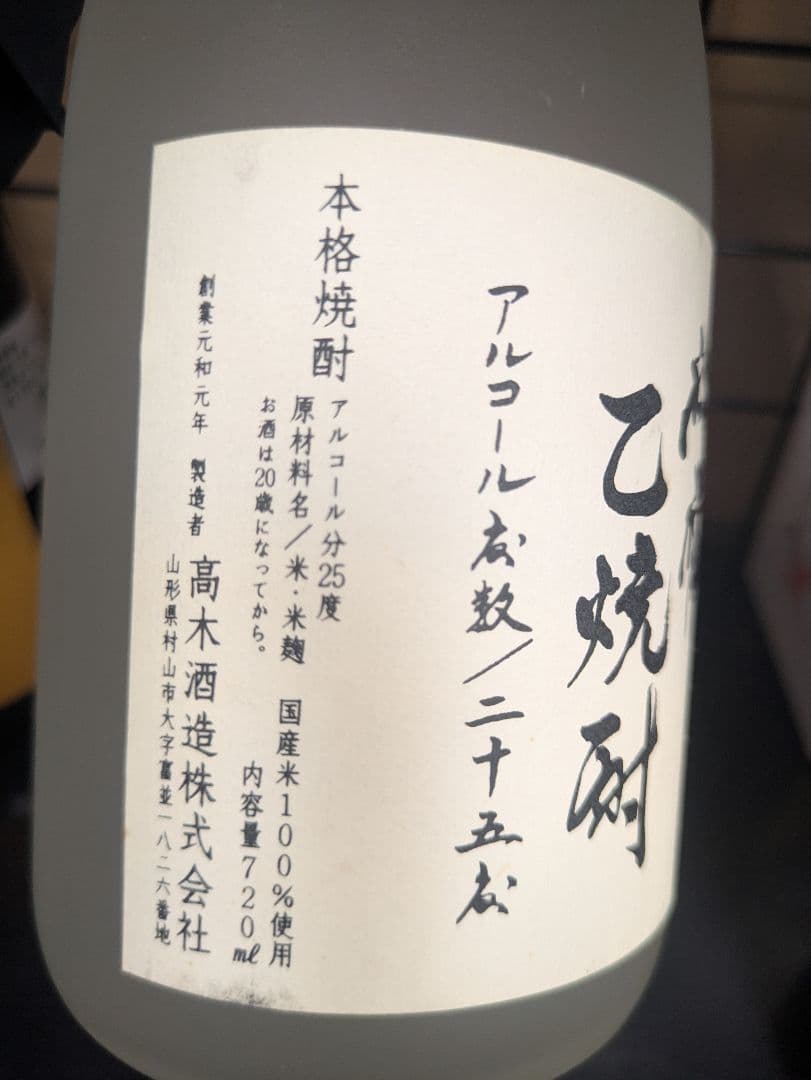 乙焼酎
アルコール度数/二十五度
本格焼酎
アルコール分25度
原材料名/米・米麹 国産米100%使用
お酒は20歳になってから。
内容量720ml
創業元和元年 製造者
高木酒造株式会社
山形県村山市大字富並一八二六番地